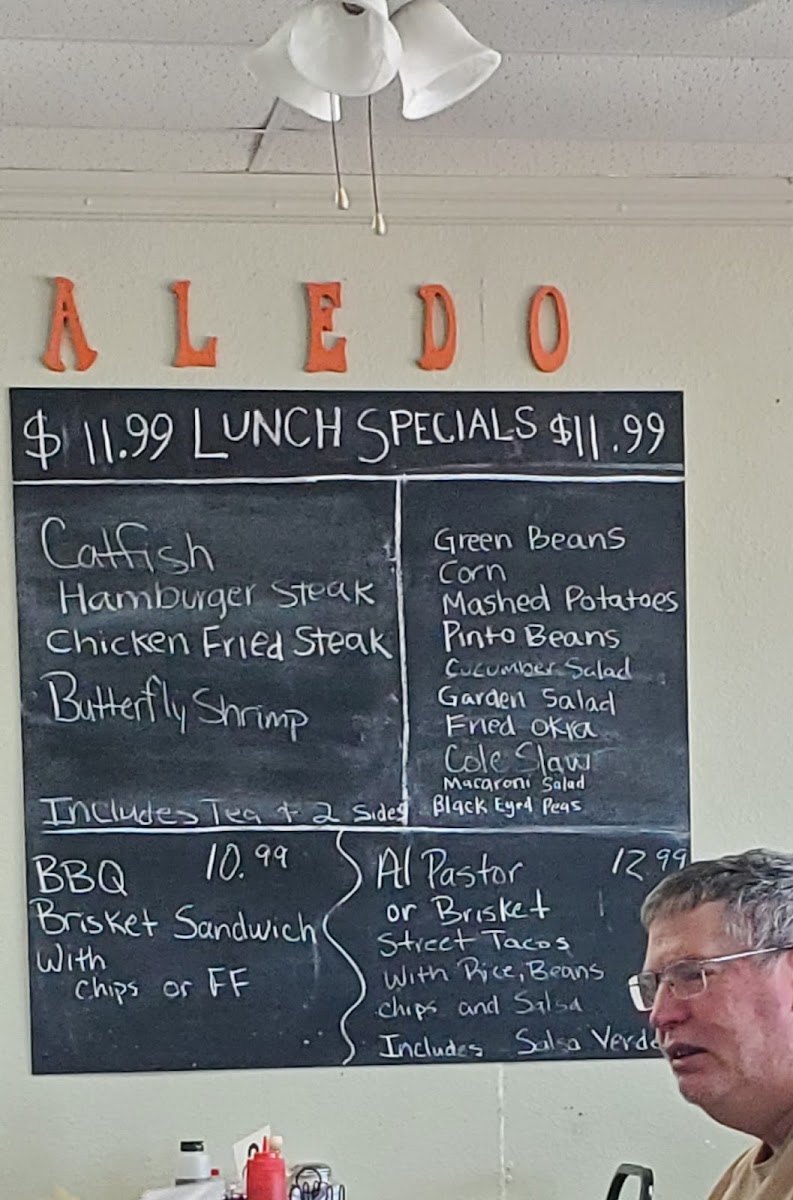 ALEDO
$11.99 LUNCH SPECIALS $11.99
Catfish
Hamburger Steak
Chicken Fried Steak
Butterfly Shrimp
Includes Tea + 2 Sides
Green Beans
Corn
Mashed Potatoes
Pinto Beans
Cucumber Salad
Garden Salad
Fried Okra
Cole Slaw
Macaroni Salad
Black Eyed Peas
BBQ 10.99
Brisket Sandwich
With
Chips or FF
Al Pastor 12.99
or Brisket
Street Tacos
With Rice, Beans
chips and Salsa
Includes Salsa Verde